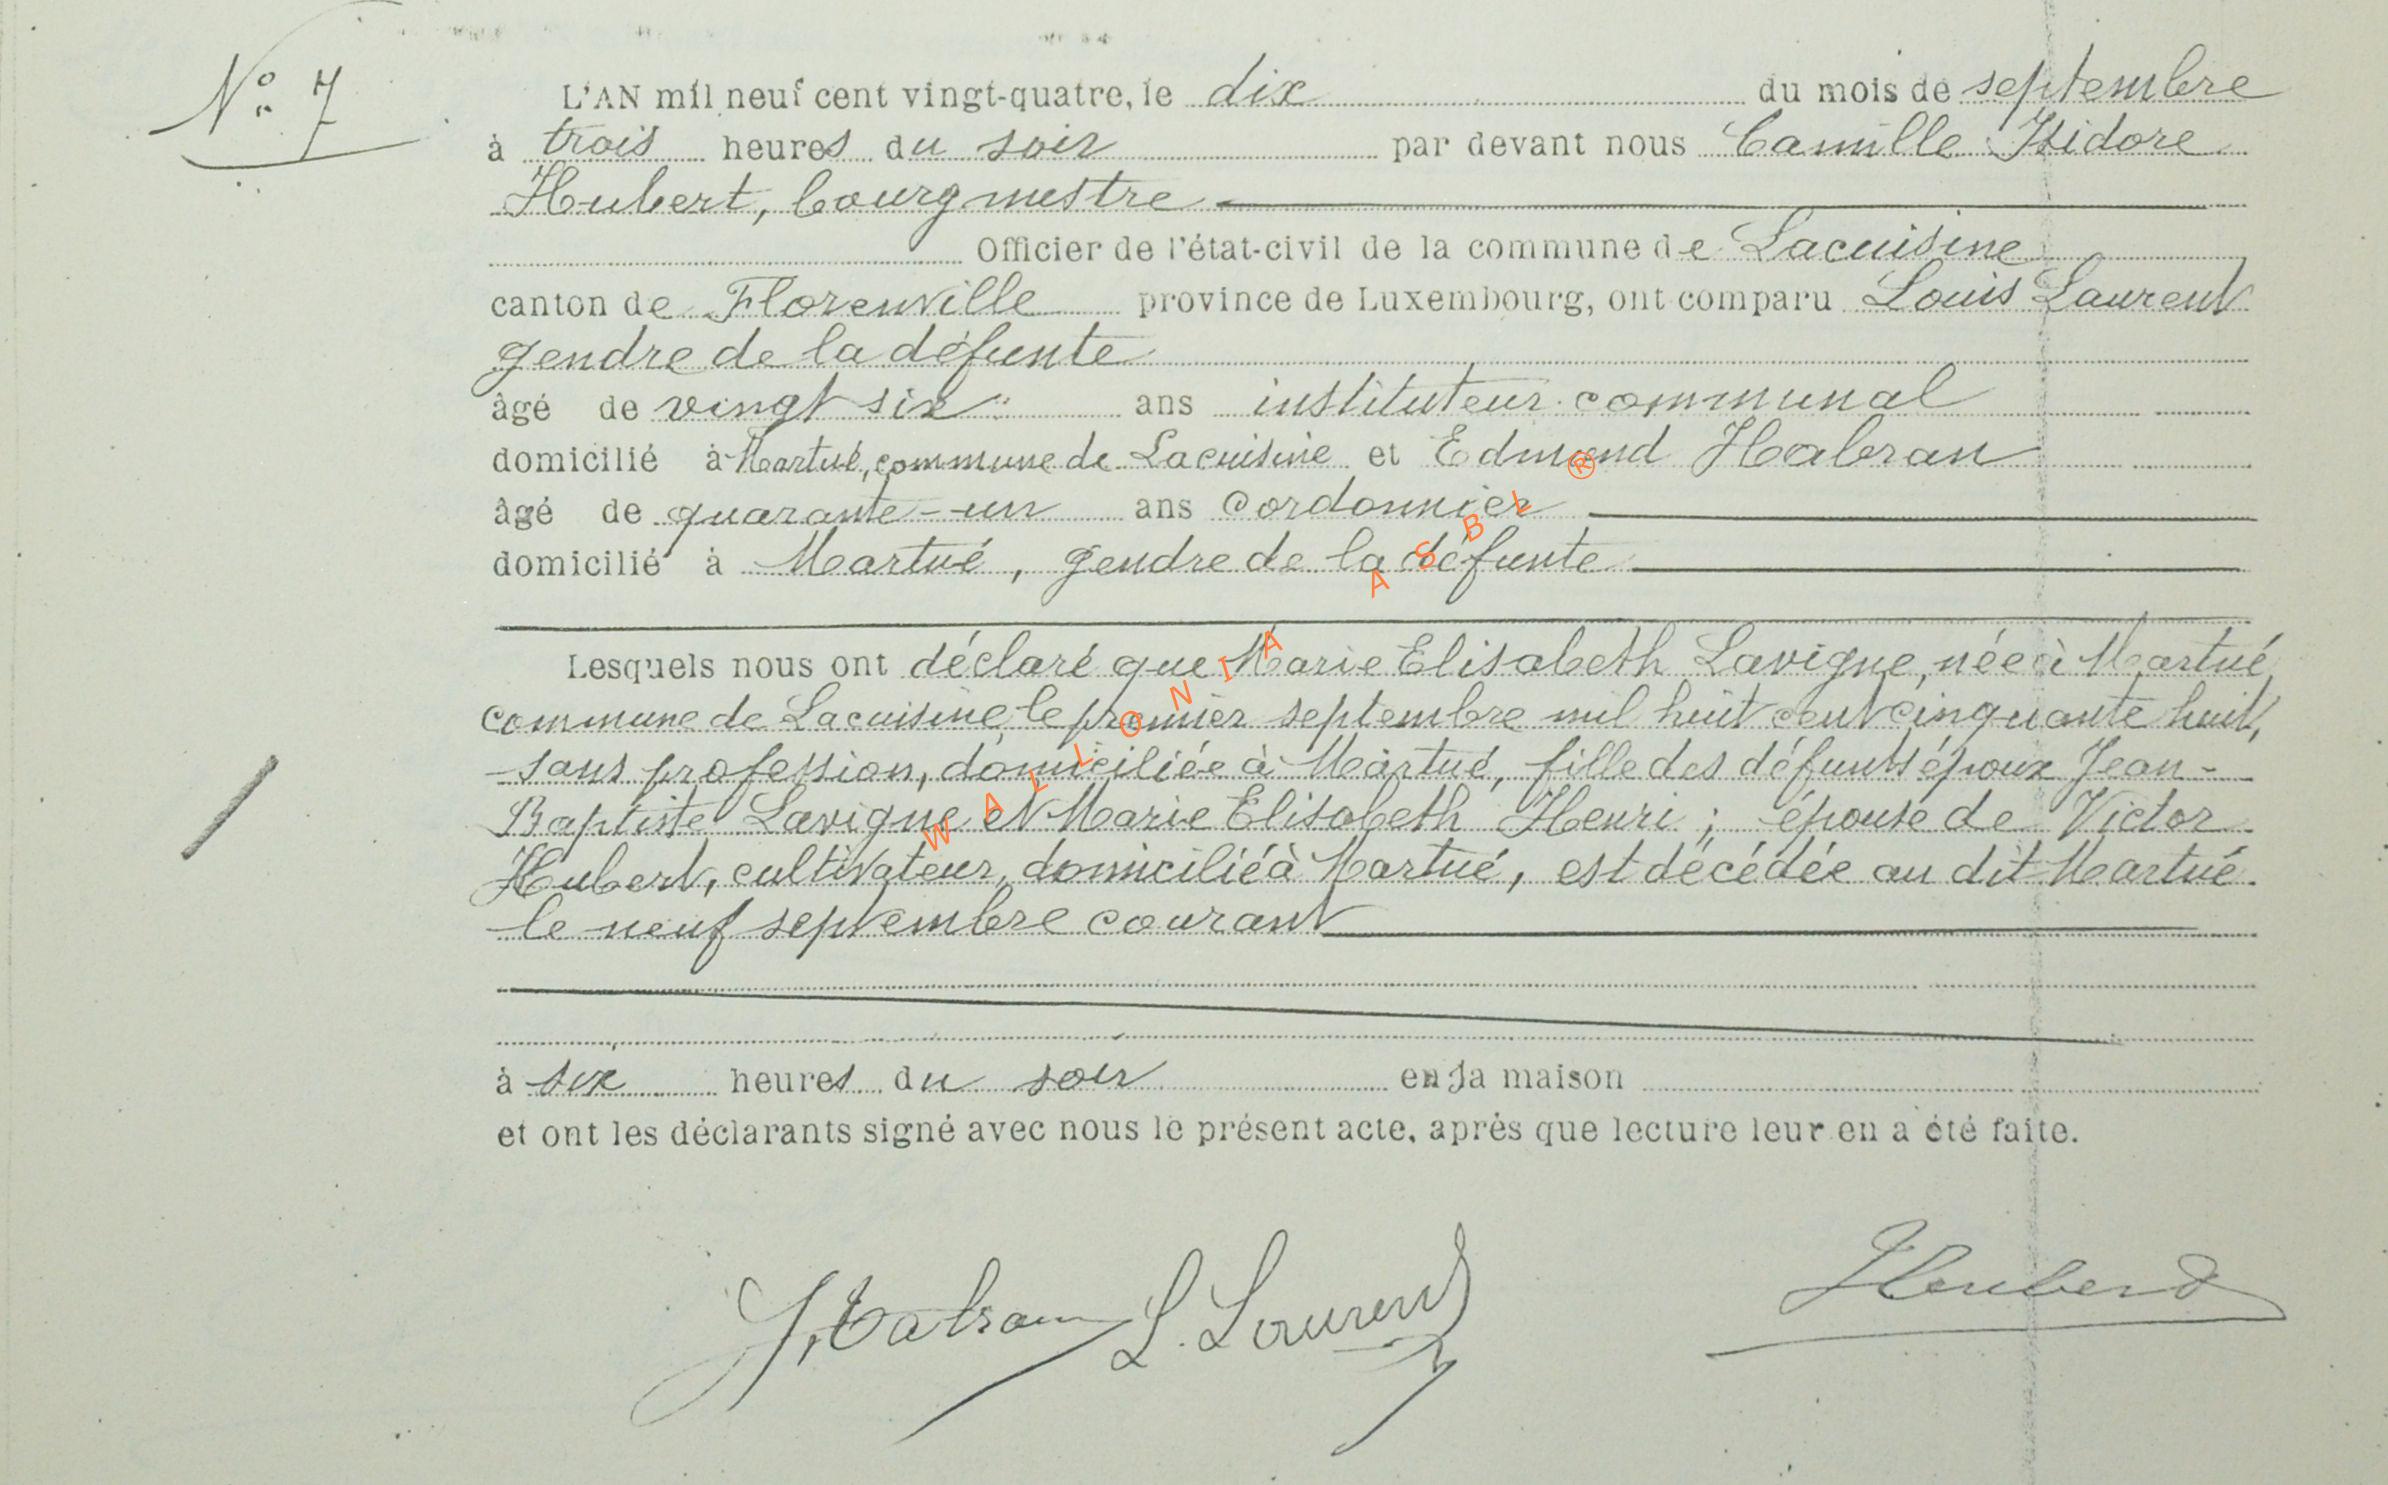 N° 7
L'AN mil neuf cent vingt-quatre, le dix du mois de septembre
à trois heures du soir par devant nous Camille Isidore
Hubert, bourgmestre
Officier de l'état-civil de la commune de Lacuisine
canton de Florenville province de Luxembourg, ont comparu Louis Laurent
gendre de la défunte
âgé de vingt six ans instituteur communal
domicilié à Martué, commune de Lacuisine et Edmond Habran
âgé de quarante-un ans cordonnier
domicilié à Martué, gendre de la défunte
Lesquels nous ont déclaré que Marie Elisabeth Lavigne, née à Martué
commune de Lacuisine, le premier septembre mil huit cent cinquante huit,
sans profession, domiciliée à Martué, fille des défunts époux Jean-
Baptiste Lavigne et Marie Elisabeth Henri ; épouse de Victor
Hubert, cultivateur, domicilié à Martué, est décédée au dit Martué
le neuf septembre courant
à six heures du soir en sa maison
et ont les déclarants signé avec nous le présent acte, après que lecture leur en a été faite.
Habran L. Laurent Hubert
WALLONIA ASBL ®